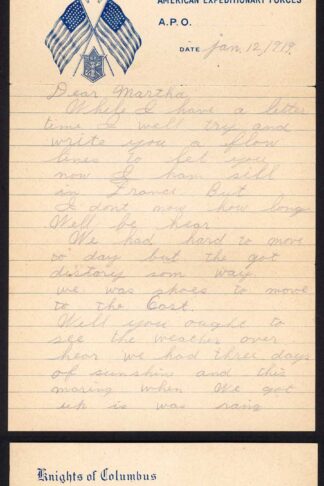 AMERICAN EXPEDITIONARY FORCES
A.P.O.
DATE Jan. 12, 1919.
Dear Martha
While I have a letter
time I well try and
write you a flow
lines to let you
now I ham still
in France. But
I dont now how long
Well be hear.
We had hard to move
to day but the got
distory som way.
we was shoes to move
to the Cost.
Well you ought to
see the weather over
hear we had three days
of sunshine and this
maring when We got
up is was raing
Knights of Columbus